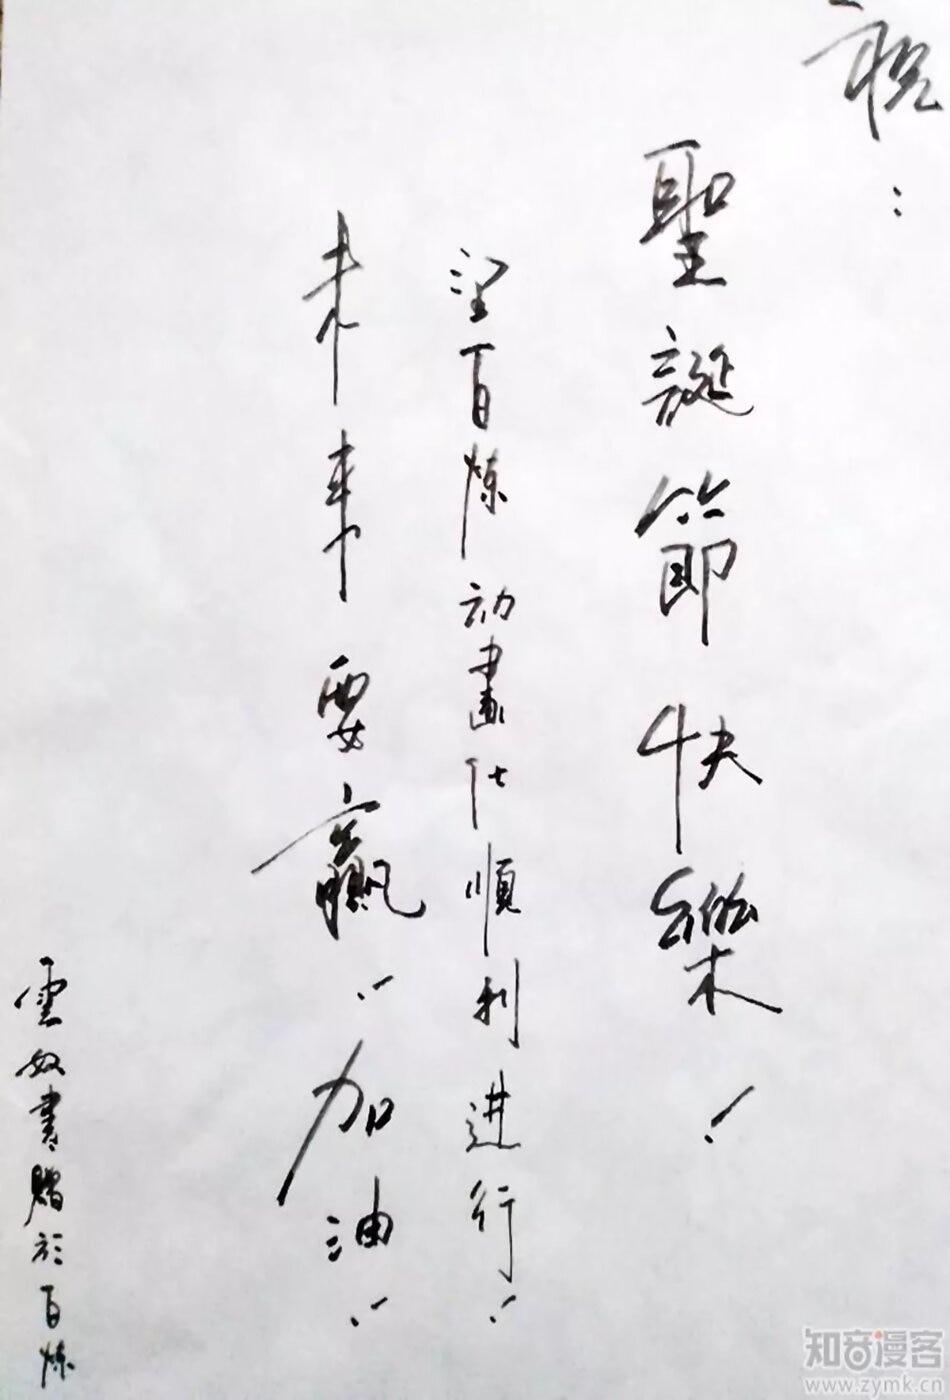 祝：
聖誕節快樂！
望百炼动畫化順利進行！
未来要贏！加油！
雲奴書贈於百炼
知音漫客
www.zymk.cn